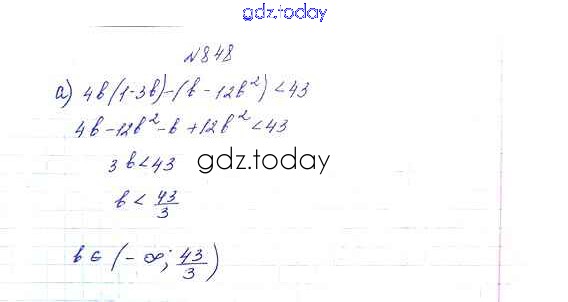 gdz.today
№848
а) 4b(1-3b)-(b-12b²)<43
4b-12b²-b+12b²<43
3b<43
gdz.today
b<43/3
b∈(-∞;43/3)